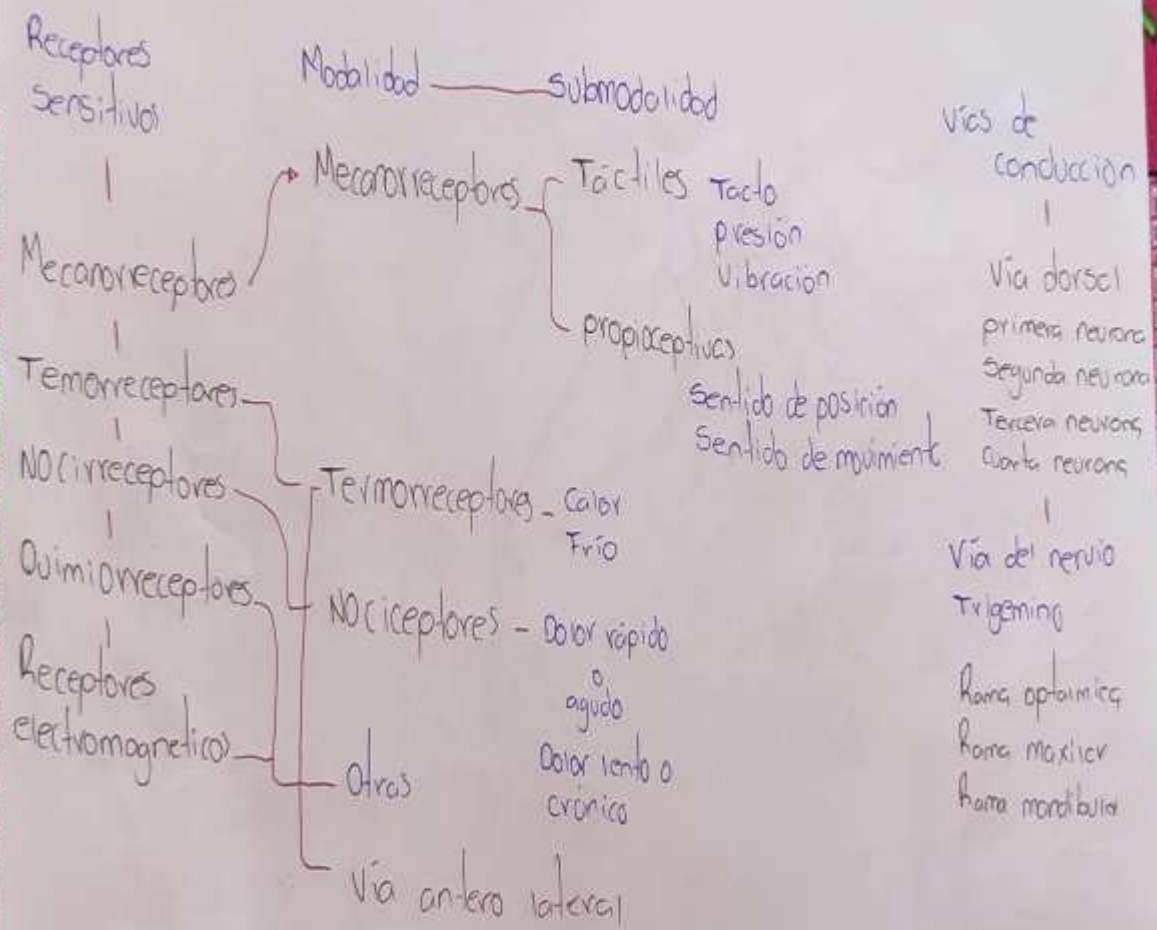 Receptores
Sensitivos
Mecanorreceptores
Temorreceptores
Nocirreceptores
Quimiorreceptores
Receptores
electromagneticos
Modalidad — submodalidad
Mecanorreceptores
Táctiles Tacto
presión
Vibración
propioceptivas
Sentido de posición
Sentido de movimient
Termorreceptores - Calor
Frío
Nociceptores - Dolor rápido
o
agudo
Dolor lento o
crónico
Otras
Vía antero lateral
Vías de
conducción
Vía dorsal
primera neurona
Segunda neurona
Tercera neurona
Cuarta neurona
Vía del nervio
Trigemino
Rama optalmica
Rama maxilar
Rama mandibular